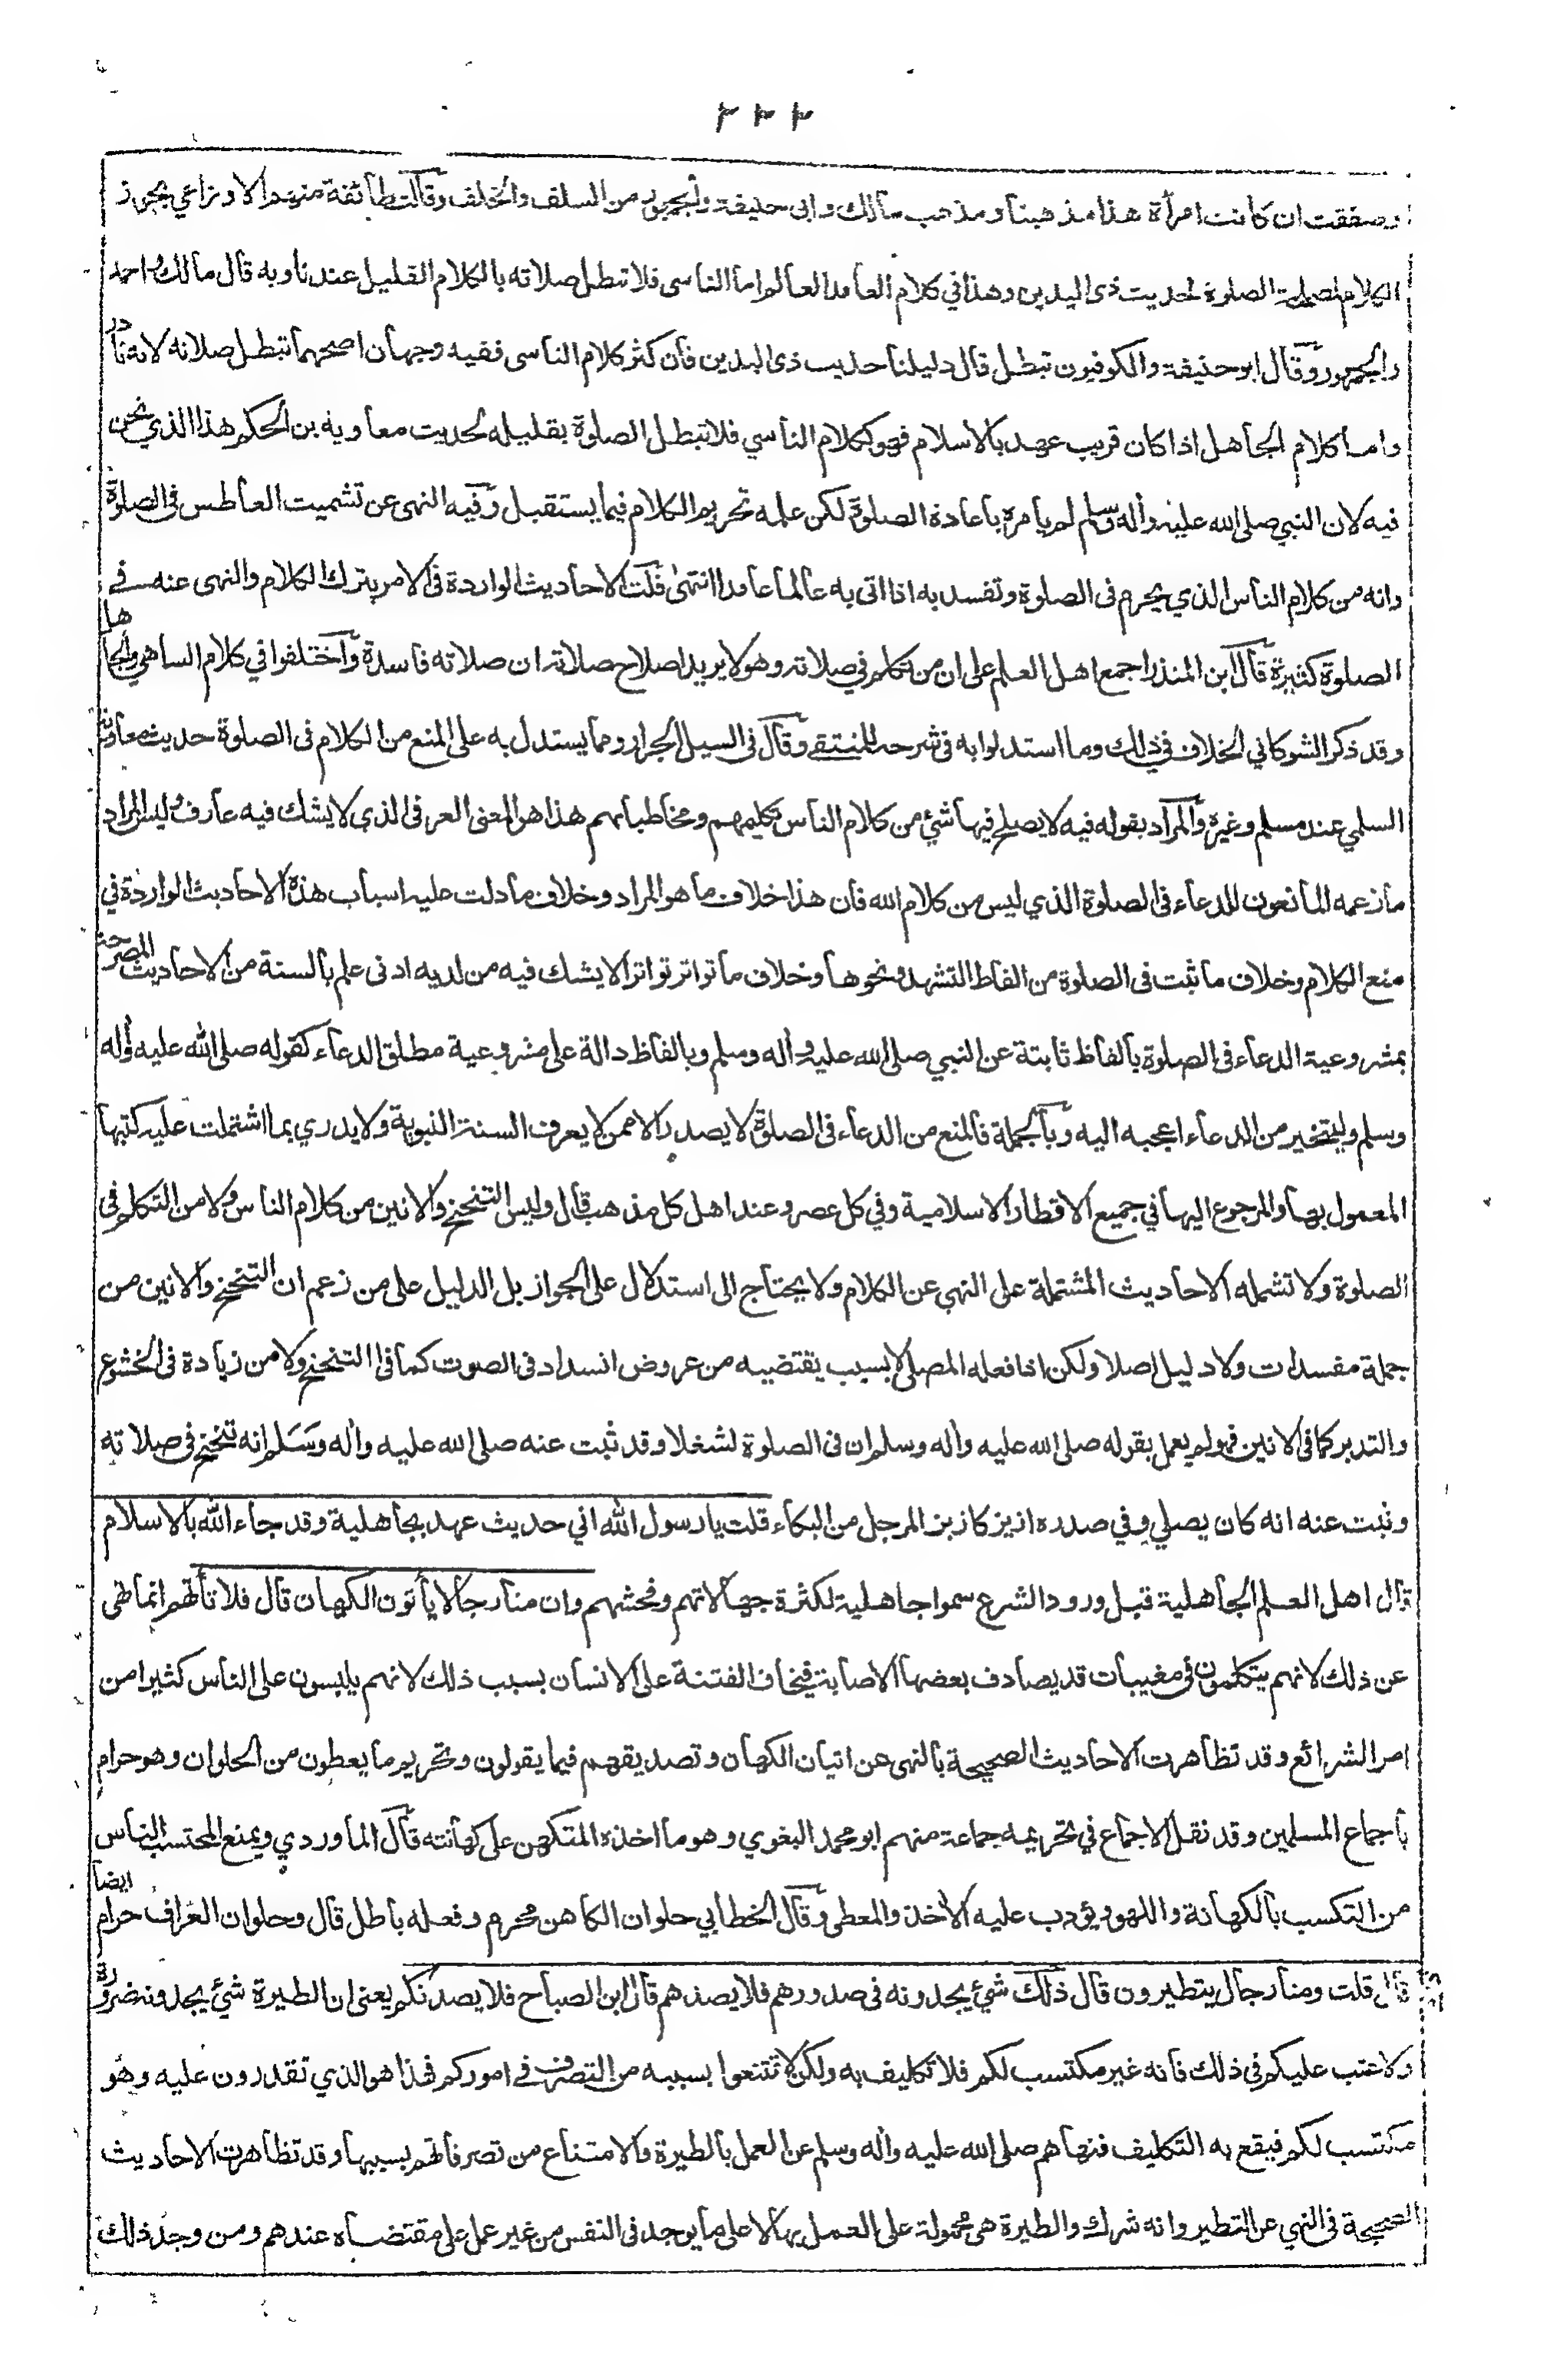 ٢٢٢
وصفقت ان كانت امرأة هذا مذهبنا ومذهب مالك وابى حنيفة والجمهور من السلف والخلف وقالت طائفة منهم الاوزاعي يجوز
الكلام لمصلحة الصلوة لحديث ذى اليدين وهذا في كلام العامد العالم اما الناسى فلا تبطل صلاته بالكلام القليل عندنا وبه قال مالك واحمد
والجمهور وقال ابوحنيفة والكوفيون تبطل قال دليلنا حديث ذى اليدين فان كثر كلام الناسى ففيه وجهان اصحهما تبطل صلاته لانه نادر
واما كلام الجاهل اذا كان قريب عهد بالاسلام فهو ككلام الناسي فلا تبطل الصلوة بقليله لحديث معاوية بن الحكم هذا الذي نحن
فيه لان النبي صلى الله عليه وأله وسلم لم يأمره باعادة الصلوة لكن علمه تحريم الكلام فيما يستقبل وفيه النهى عن تشميت العاطس فى الصلوة
وانه من كلام الناس الذي يحرم فى الصلوة وتفسد به اذا اتى به عالما عامدا انتهى قلت الاحاديث الواردة فى الامر بترك الكلام والنهى عنه في
الصلوة كثيرة قال ابن المنذر اجمع اهل العلم على ان من تكلم في صلاته وهو لا يريد اصلاح صلاته ان صلاته فاسدة واختلفوا في كلام الساهي والجاهل
وقد ذكر الشوكاني الخلاف في ذلك وما استدلوا به فى شرحه للمنتقى وقال فى السيل الجرار ومما يستدل به على المنع من الكلام فى الصلوة حديث معاوية
السلمي عند مسلم وغيره والمراد بقوله فيه لا يصلح فيها شئ من كلام الناس تكليمهم ومخاطباتهم هذا هو المعنى العرفى الذي لا يشك فيه عارف وليس المراد
ما زعمه المانعون للدعاء فى الصلوة الذي ليس من كلام الله فان هذا خلاف ما هو المراد وخلاف ما دلت عليه اسباب هذه الاحاديث الواردة في
منع الكلام وخلاف ما ثبت فى الصلوة من الفاظ التشهد ونحوها وخلاف ما تواتر تواترا لا يشك فيه من لديه ادنى علم بالسنة من الاحاديث المصرحة
بمشروعية الدعاء فى الصلوة بالفاظ ثابتة عن النبي صلى الله عليه وأله وسلم وبالفاظ دالة على مشروعية مطلق الدعاء كقوله صلى الله عليه وأله
وسلم وليتخير من الدعاء اعجبه اليه وبالجملة فالمنع من الدعاء فى الصلوة لا يصدر الا ممن لا يعرف السنة النبوية ولا يدري بما اشتملت عليه كتبها
المعمول بها والمرجوع اليها في جميع الاقطار الاسلامية وفي كل عصر وعند اهل كل مذهب قال وليس التنحنح والانين من كلام الناس ولا من التكلم فى
الصلوة ولا تشمله الاحاديث المشتملة على النهي عن الكلام ولا يحتاج الى استدلال على الجواز بل الدليل على من زعم ان التنحنح والانين من
جملة مفسدات ولا دليل اصلا ولكن اذا فعله المصلى لا بسبب يقتضيه من عروض انسداد فى الصوت كما فى التنحنح ولا من زيادة فى الخشوع
والتدبر كما فى الانين فهو لم يعمل بقوله صلى الله عليه وأله وسلم ان فى الصلوة لشغلا وقد ثبت عنه صلى الله عليه وأله وسلم انه تنحنح فى صلاته
وثبت عنه انه كان يصلي وفي صدره ازيز كازيز المرجل من البكاء قلت يا رسول الله اني حديث عهد بجاهلية وقد جاء الله بالاسلام
قال اهل العلم الجاهلية قبل ورود الشرع سموا جاهلية لكثرة جهالاتهم وفحشهم وان منا رجالا يأتون الكهان قال فلا تأتهم انما نهى
عن ذلك لانهم يتكلمون فى مغيبات قد يصادف بعضها الاصابة فيخاف الفتنة على الانسان بسبب ذلك لانهم يلبسون على الناس كثيرا من
امر الشرائع وقد تظاهرت الاحاديث الصحيحة بالنهى عن اتيان الكهان وتصديقهم فيما يقولون وتحريم ما يعطون من الحلوان وهو حرام
باجماع المسلمين وقد نقل الاجماع في تحريمه جماعة منهم ابو محمد البغوي وهو ما اخذه المتكهن على كهانته قال الماوردي ويمنع المحتسب الناس
من التكسب بالكهانة واللهو ويؤدب عليه الأخذ والمعطى وقال الخطابي حلوان الكاهن محرم وفعله باطل قال وحلوان العراف حرام ايضا
قال قلت ومنا رجال يتطيرون قال ذلك شئ يجدونه فى صدورهم فلا يصدهم قال ابن الصباح فلا يصدنكم يعنى ان الطيرة شئ يجدونه ضرورة
ولا عتب عليكم في ذلك فانه غير مكتسب لكم فلا تكليف به ولكن لا تمتنعوا بسببه من التصرف في اموركم فهذا هو الذي تقدرون عليه وهو
مكتسب لكم فيقع به التكليف فنهاهم صلى الله عليه وأله وسلم عن العمل بالطيرة والامتناع من تصرفاتهم بسببها وقد تظاهرت الاحاديث
الصحيحة فى النهي عن التطير وانه شرك والطيرة هى محمولة على العمل بها لا على ما يوجد فى النفس من غير عمل على مقتضاه عندهم ومن وجد ذلك